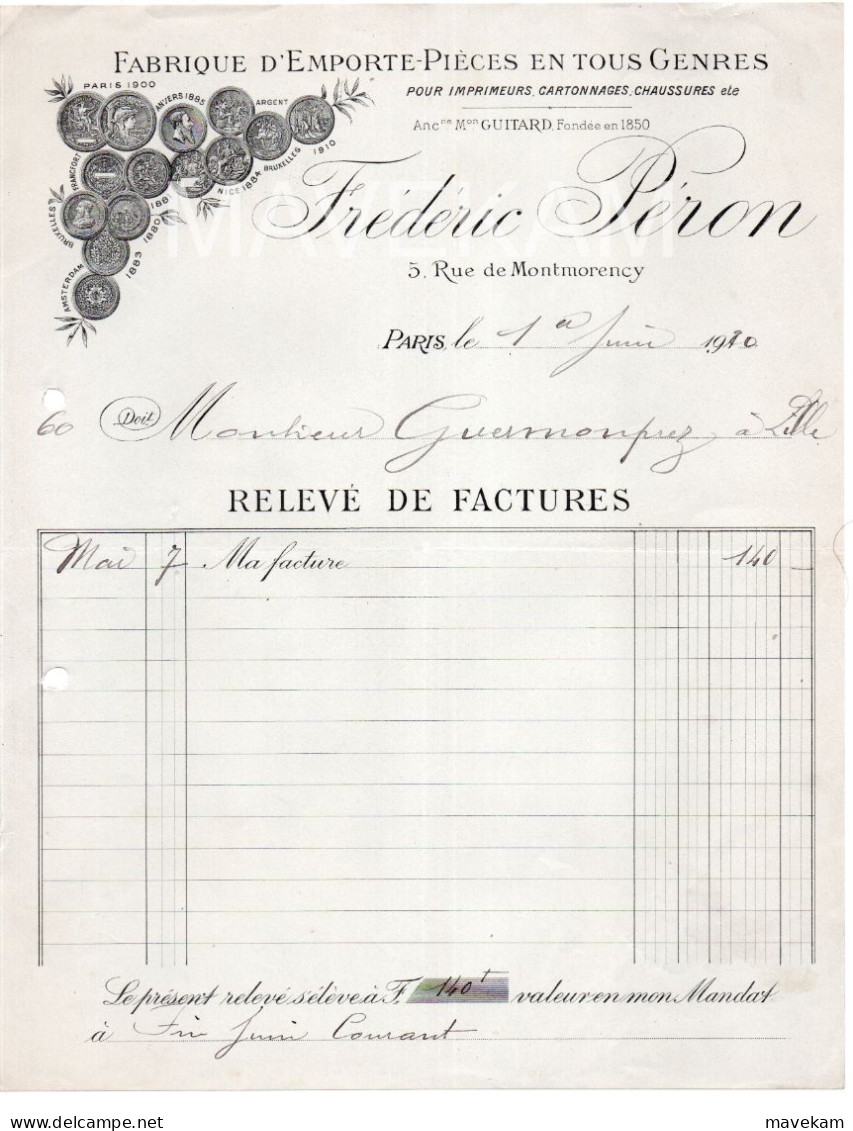 FABRIQUE D'EMPORTE-PIÈCES EN TOUS GENRES
POUR IMPRIMEURS, CARTONNAGES, CHAUSSURES etc
Anc^ne M^on GUITARD, Fondée en 1850
PARIS 1900
ANVERS 1885
ARGENT
FRANCFORT
1881
NICE 1884
BRUXELLES
1910
BRUXELLES
1880
AMSTERDAM
1883
MAVEKAM
Frédéric Péron
5, Rue de Montmorency
PARIS, le 1er Juin 1920
60 Doit Monsieur Guermonprez, à Lille
RELEVÉ DE FACTURES
Mai 7 Ma facture 140 —
Le présent relevé s'élève à F. 140 f valeur en mon Mandat
à Fin Juin Courant
mavekam
mavekam